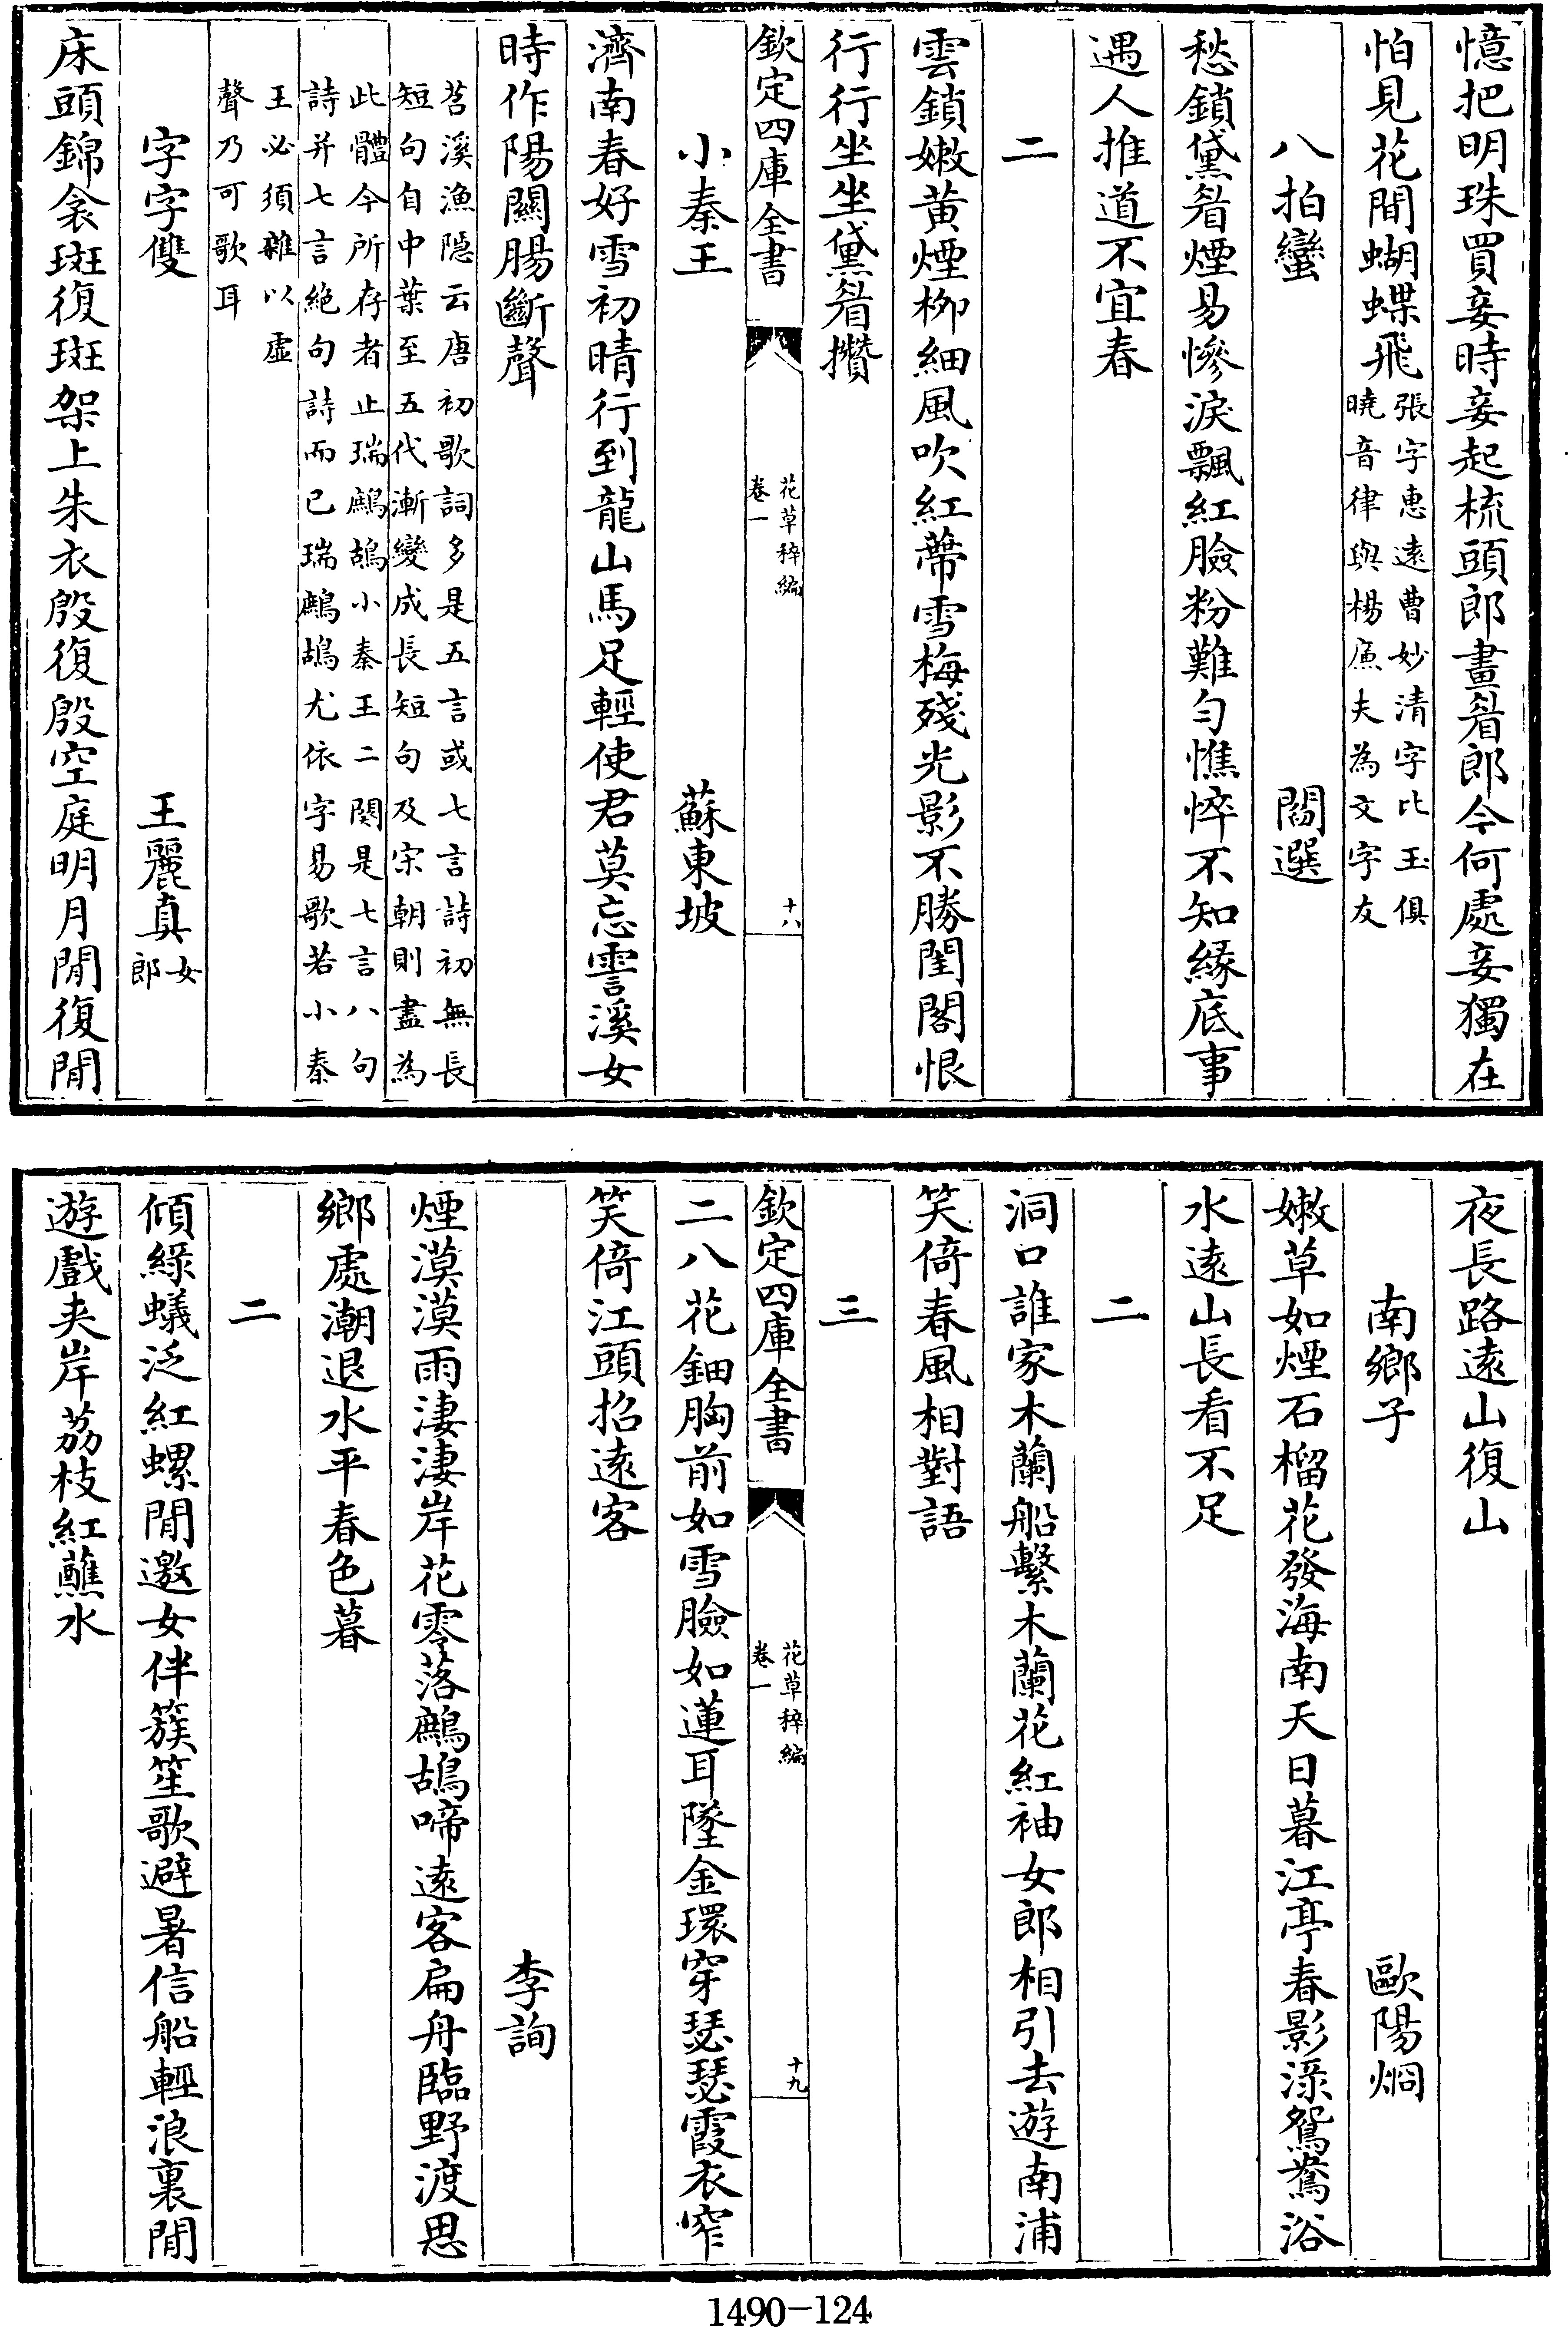 憶把明珠買妾時妾起梳頭郎畫眉郎今何處妾獨在
怕見花間蝴蝶飛張字惠遠曹妙清字比玉俱
曉音律與楊廉夫為文字友
八拍蠻 閻選
愁鎖黛眉煙易慘淚飄紅臉粉難勻憔悴不知緣底事
遇人推道不宜春
二
雲鎖嫩黃煙柳細風吹紅蔕雪梅殘光影不勝閨閣恨
行行坐坐黛眉攢
欽定四庫全書 花草稡編 卷一 十八
小秦王 蘇東坡
濟南春好雪初晴行到龍山馬足輕使君莫忘霅溪女
時作陽關腸斷聲
苕溪漁隱云唐初歌詞多是五言或七言詩初無長
短句自中葉至五代漸變成長短句及宋朝則盡為
此體今所存者止瑞鷓鴣小秦王二闋是七言八句
詩并七言絕句詩而已瑞鷓鴣尤依字易歌若小秦
王必須雜以虛
聲乃可歌耳
字字雙 王麗真女郎
床頭錦衾斑復斑架上朱衣殷復殷空庭明月閒復閒
夜長路遠山復山
南鄉子 歐陽烱
嫩草如煙石榴花發海南天日暮江亭春影淥鴛鴦浴
水遠山長看不足
二
洞口誰家木蘭船繫木蘭花紅袖女郎相引去遊南浦
笑倚春風相對語
三
欽定四庫全書 花草稡編 卷一 十九
二八花鈿胸前如雪臉如蓮耳墜金環穿瑟瑟霞衣窄
笑倚江頭招遠客
李詢
煙漠漠雨淒淒岸花零落鷓鴣啼遠客扁舟臨野渡思
鄉處潮退水平春色暮
二
傾綠蟻泛紅螺閒邀女伴簇笙歌避暑信船輕浪裏閒
遊戲夾岸荔枝紅蘸水
1490-124